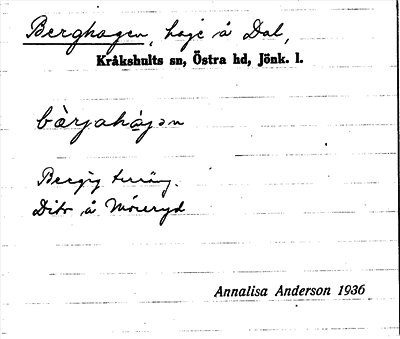 Berghagen, hage å Dal,
Kråkshults sn, Östra hd, Jönk. l.
bærjahágən
Bergig terräng.
Dito å Möreryd
Annalisa Anderson 1936